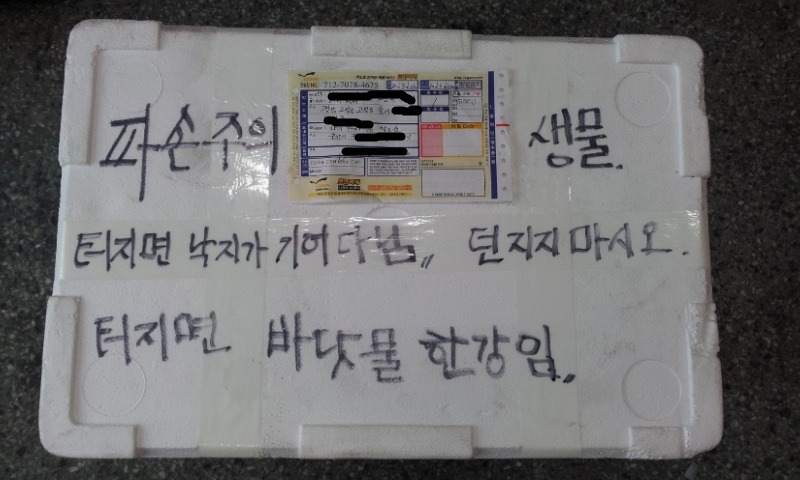 712-7078-4673
파손주의 생물.
터지면 낙지가 기어다님,, 던지지마시오.
터지면 바닷물 한강임,,